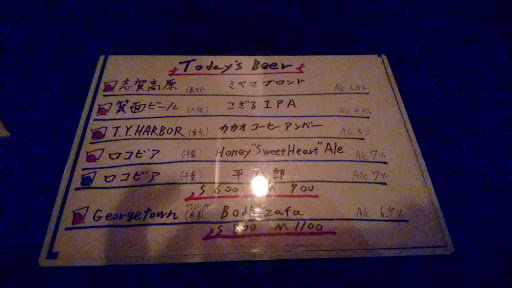 Today's Beer
志賀高原 (長野) ミヤマブロンド Alc 6.5%
箕面ビール (大阪) こざるIPA Alc
T.Y.HARBOR (東京) カカオコーヒーアンバー Alc 5%
ロコビア (千葉) Honey "Sweet Heart" Ale Alc 7%
ロコビア (千葉) Alc 7%
S 600 M 900
Georgetown Bodhizafa Alc 6.9%
S M 1100